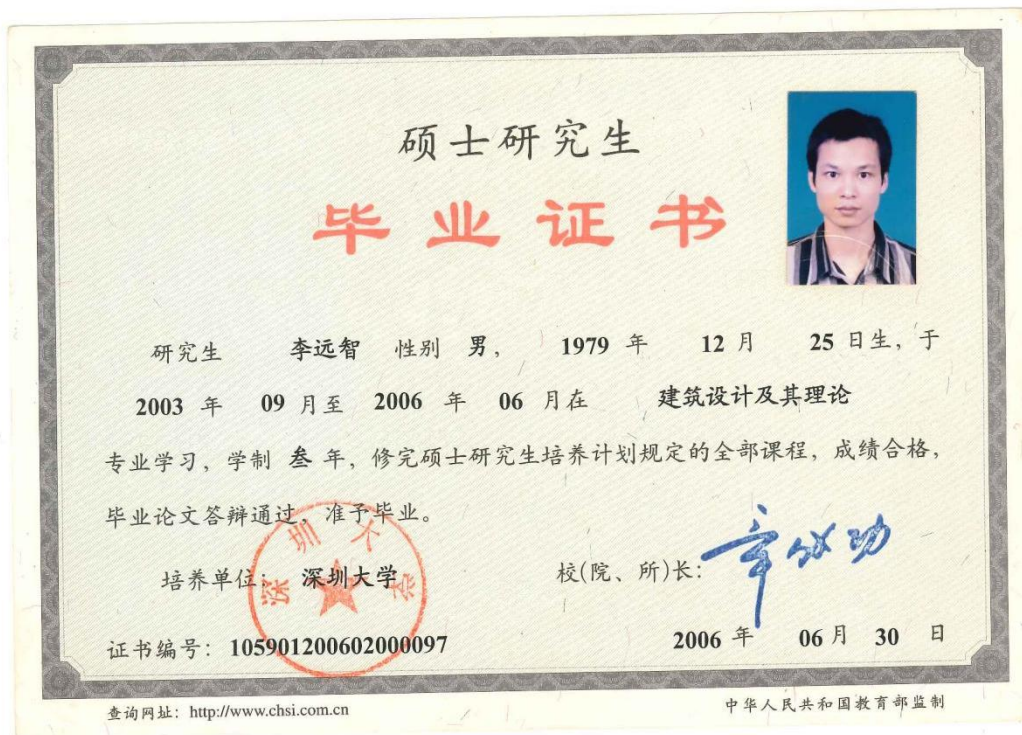 硕士研究生
毕业证书
研究生 李远智 性别 男， 1979 年 12 月 25 日生，于
2003 年 09 月至 2006 年 06 月在 建筑设计及其理论
专业学习，学制 叁 年，修完硕士研究生培养计划规定的全部课程，成绩合格，
毕业论文答辩通过，准予毕业。
培养单位： 深圳大学 校(院、所)长： 章必功
深圳大学
证书编号：105901200602000097 2006 年 06 月 30 日
查询网址：http://www.chsi.com.cn 中华人民共和国教育部监制